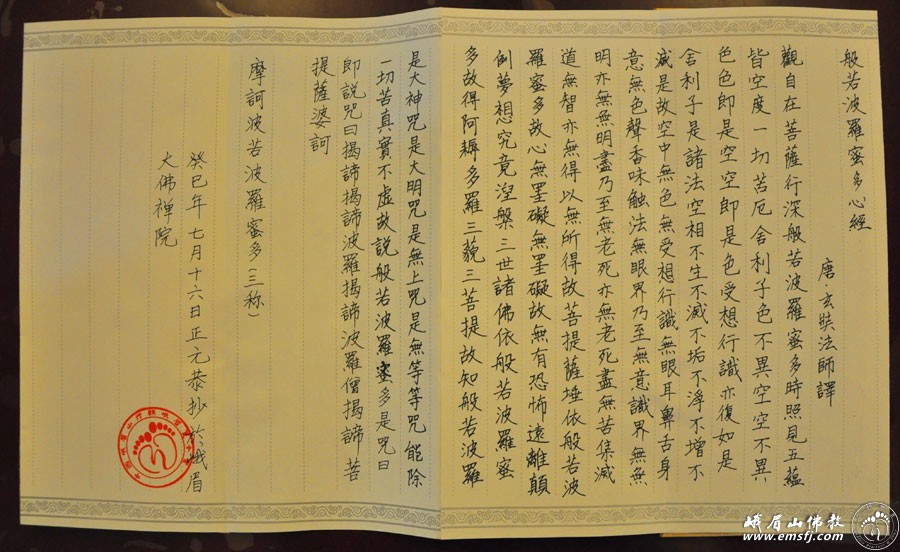 般若波羅蜜多心經
唐·玄奘法師譯
觀自在菩薩行深般若波羅蜜多時照見五蘊
皆空度一切苦厄舍利子色不異空空不異
色色即是空空即是色受想行識亦復如是
舍利子是諸法空相不生不滅不垢不淨不增不
滅是故空中無色無受想行識無眼耳鼻舌身
意無色聲香味触法無眼界乃至無意識界無無
明亦無無明盡乃至無老死亦無老死盡無苦集滅
道無智亦無得以無所得故菩提薩埵依般若波
羅蜜多故心無罣礙無罣礙故無有恐怖遠離顛
倒夢想究竟涅槃三世諸佛依般若波羅蜜
多故得阿耨多羅三藐三菩提故知般若波羅
是大神咒是大明咒是無上咒是無等等咒能除
一切苦真實不虛故説般若波羅蜜多是咒曰
即説咒曰揭諦揭諦波羅揭諦波羅僧揭諦菩
提薩婆訶
摩訶波若波羅蜜多(三称)
癸巳年七月十六日正元恭抄於峨眉
大佛禅院
峨眉山佛教
www.emsfj.com